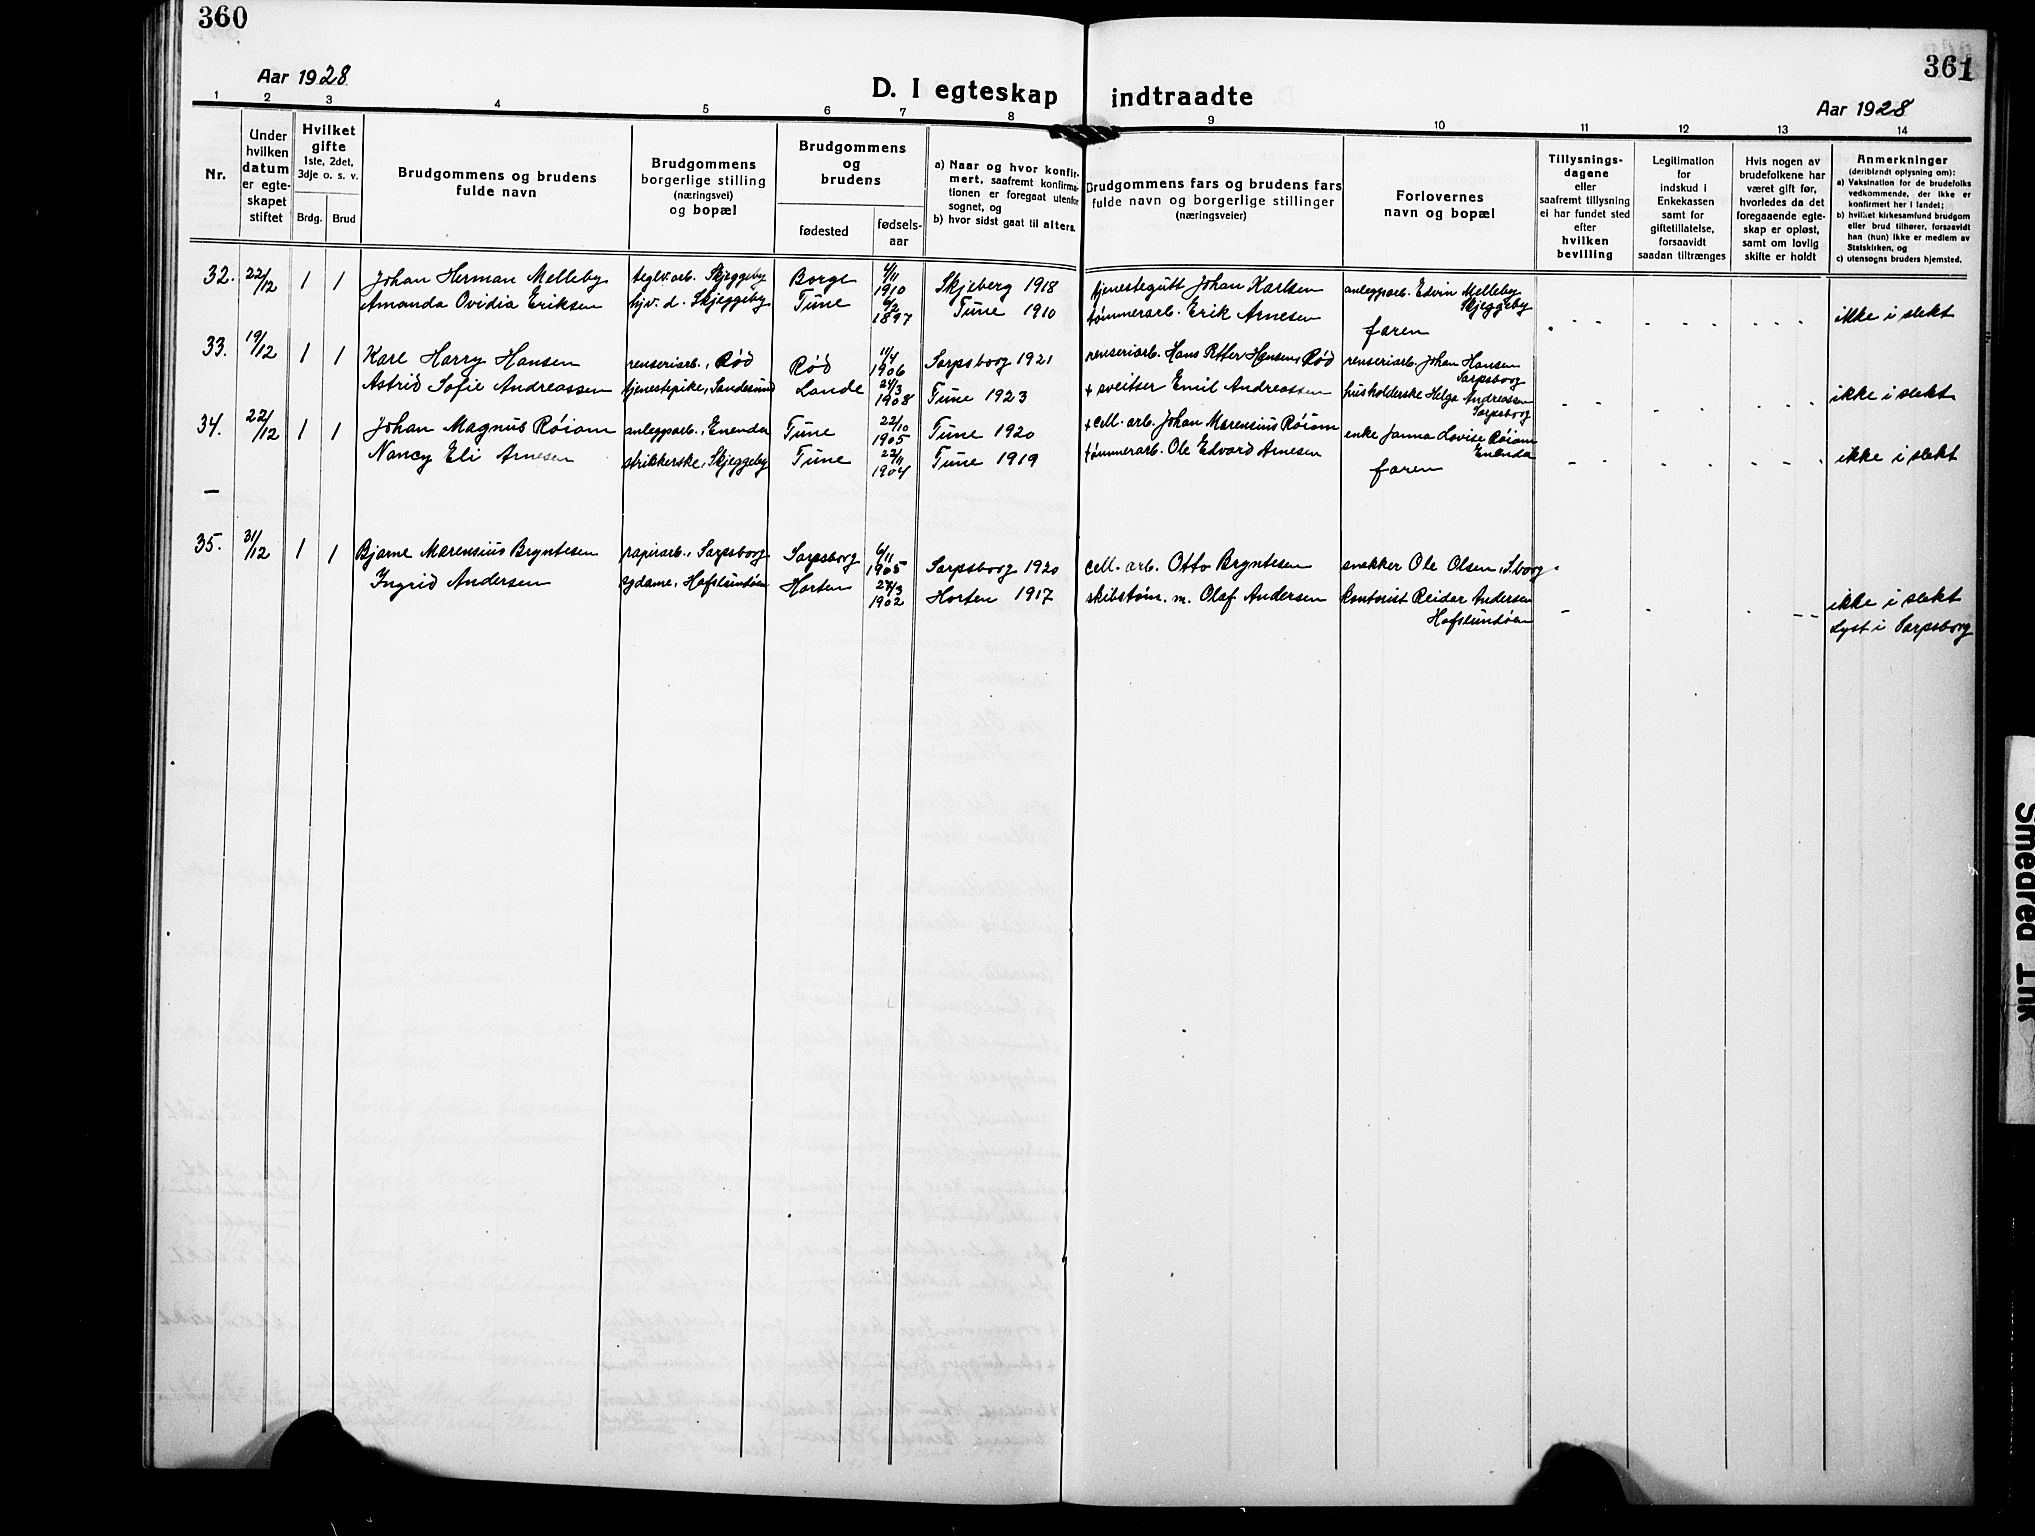 360
Aar 1928
D. I egteskap indtraadte
361
Aar 1928
1 2 3 4 5 6 7 8 9 10 11 12 13 14
Nr.
Under hvilken datum er egteskapet stiftet
Hvilket gifte
1ste, 2det, 3dje o. s. v.
Brdg. Brud
Brudgommens og brudens fulde navn
Brudgommens borgerlige stilling (næringsvei) og bopæl
Brudgommens og brudens
fødested
fødselsaar
a) Naar og hvor konfirmert, saafremt konfirmationen er foregaat utenfor sognet, og
b) hvor sidst gaat til alters.
Brudgommens fars og brudens fars fulde navn og borgerlige stillinger (næringsveier)
Forlovernes navn og bopæl
Tillysningsdagene eller saafremt tillysning ei har fundet sted efter hvilken bevilling
Legitimation for indskud i Enkekassen samt for giftetillatelse, forsaavidt saadan tiltrænges
Hvis nogen av brudefolkene har været gift før, hvorledes da det foregaaende egteskap er opløst, samt om lovlig skifte er holdt
Anmerkninger
(deriblandt oplysning om):
a) Vaksination for de brudefolks vedkommende, der ikke er konfirmert her i landet;
b) hvilket kirkesamfund brudgom eller brud tilhører, forsaavidt han (hun) ikke er medlem av Statskirken, og
c) utensogns bruders hjemsted.
32. 22/12 1 1 Johan Herman Melleby teglv.arb. Skjeggeby Borge 4/11 1910 Skjeberg 1918 tjenestegutt Johan Karlsen anleggsarb. Edvin Melleby Skjeggeby
Amanda Ovidia Eriksen tjv. d. Skjeggeby Tune 6/2 1897 Tune 1910 tømmerarb. Erik Arnesen faren ikke i slekt
33. 19/12 1 1 Karl Harry Hansen renseriarb., Rød Rød 11/4 1906 Sarpsborg 1921 renseriarb. Hans Petter Hansen, Rød renseriarb. Johan Hansen Sarpsborg
Astrid Sofie Andreassen tjenestepike, Sandesund Lande 24/3 1908 Tune 1923 + sveitser Emil Andreassen husholderske Helga Andreassen Sarpsborg ikke i slekt
34. 22/12 1 1 Johan Magnus Røiom anleggsarb., Enenda Tune 22/10 1905 Tune 1920 + cell. arb. Johan Marensius Røiom enke Janna Lovise Røiom Enenda
Nancy Eli Arnesen strikkerske, Skjeggeby Tune 22/11 1904 Tune 1919 tømmerarb. Ole Edvard Arnesen faren ikke i slekt
—
35. 31/12 1 1 Bjarne Marensius Bryntesen papirarb., Sarpsborg Sarpsborg 6/11 1905 Sarpsborg 1920 cell. arb. Otto Bryntesen snekker Ole Olsen, S.borg
Ingrid Andersen sydame, Hafslundøen Horten 27/3 1902 Horten 1917 skibstøm. m. Olaf Andersen kontorist Reidar Andersen Hafslundøen ikke i slekt
Lyst i Sarpsborg
Smeared Ink